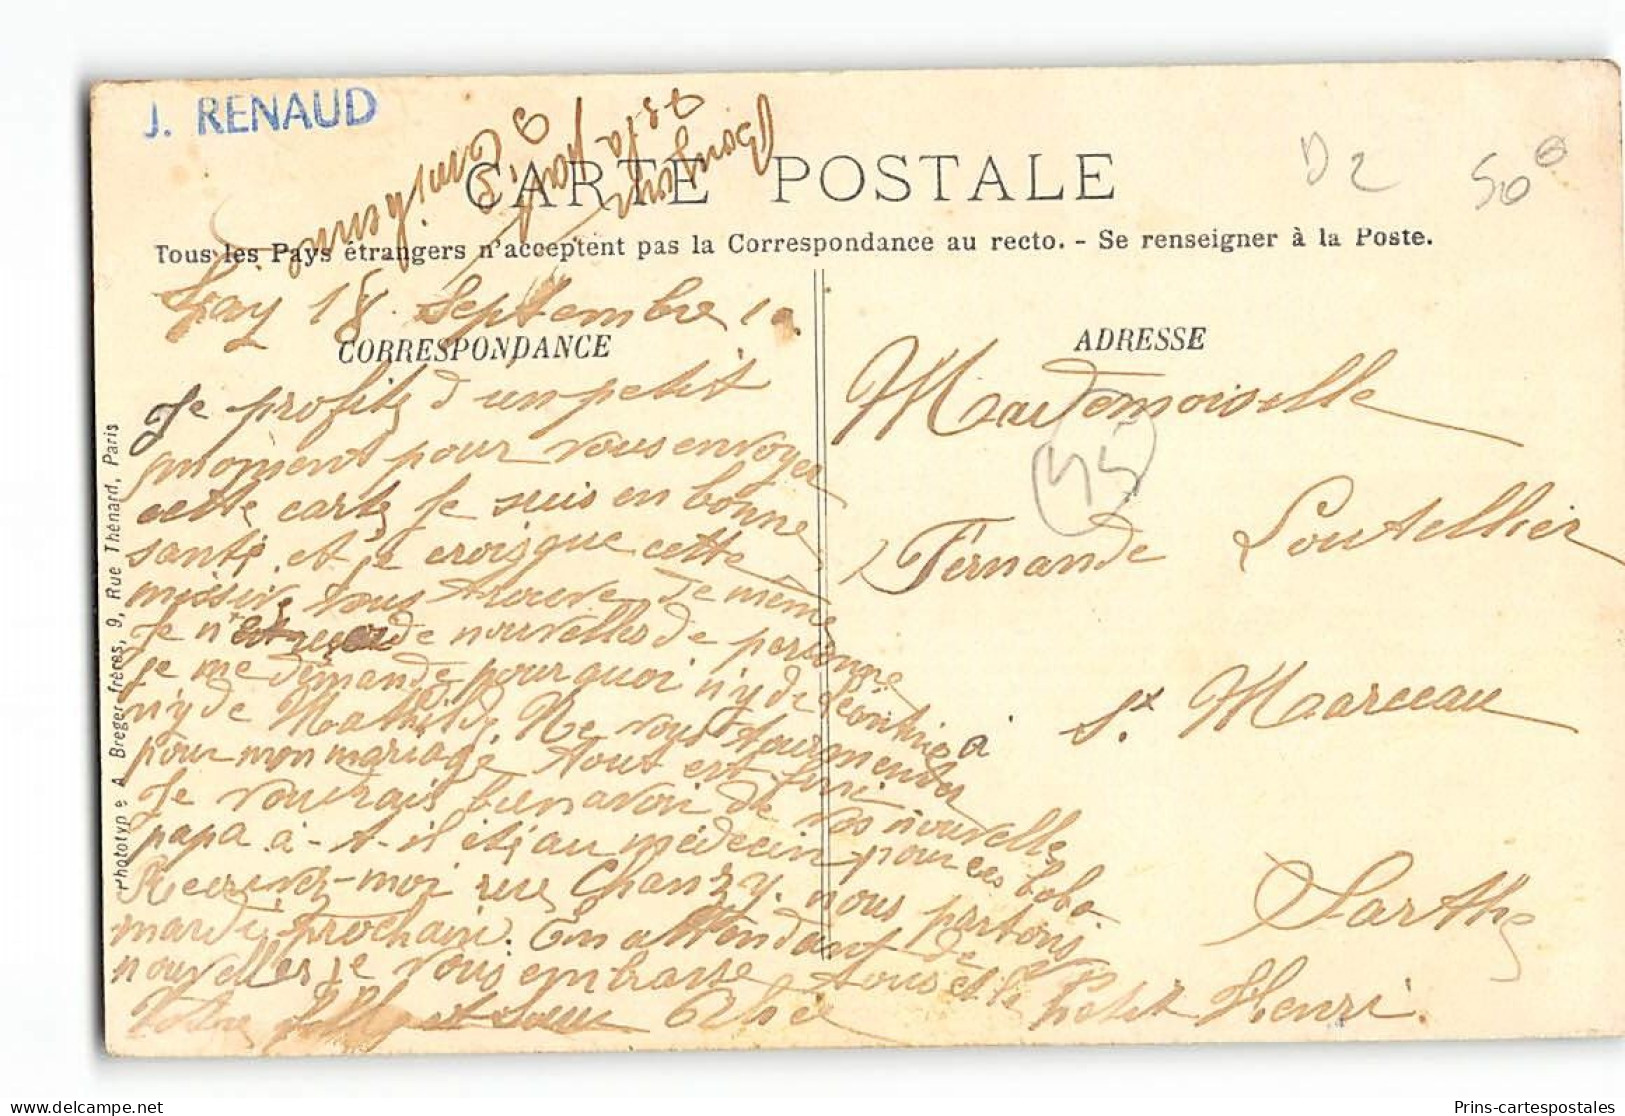 J. RENAUD
Bonjour
à ma
CARTE POSTALE
Tous les Pays étrangers n'acceptent pas la Correspondance au recto. - Se renseigner à la Poste.
D 2
50
18 Septembre 10
CORRESPONDANCE
ADRESSE
Je profite d'un petit
moment pour vous envoyer
cette carte Je suis en bonne
santé, et je crois que cette
missive vous trouve de même
Je n'ai de nouvelles de personne
je me demande pourquoi n'y de Léontine
n'y de Mathilde, Ne vous tourmentez
pour mon mariage tout est fini
Je voudrais bien avoir de vos nouvelles
papa a-t-il été au médecin pour ces bobo
Récrivez-moi rue Chanzy. nous partons
mardi prochain. En attendant de
nouvelles je vous embrasse tous et le Petit Henri.
Votre fille et sœur Alice
Mademoiselle
45
Fernande Loutellier
à St Marceau
Sarthe
Phototypie A. Breger frères, 9, Rue Thénard, Paris
Prins-cartespostales